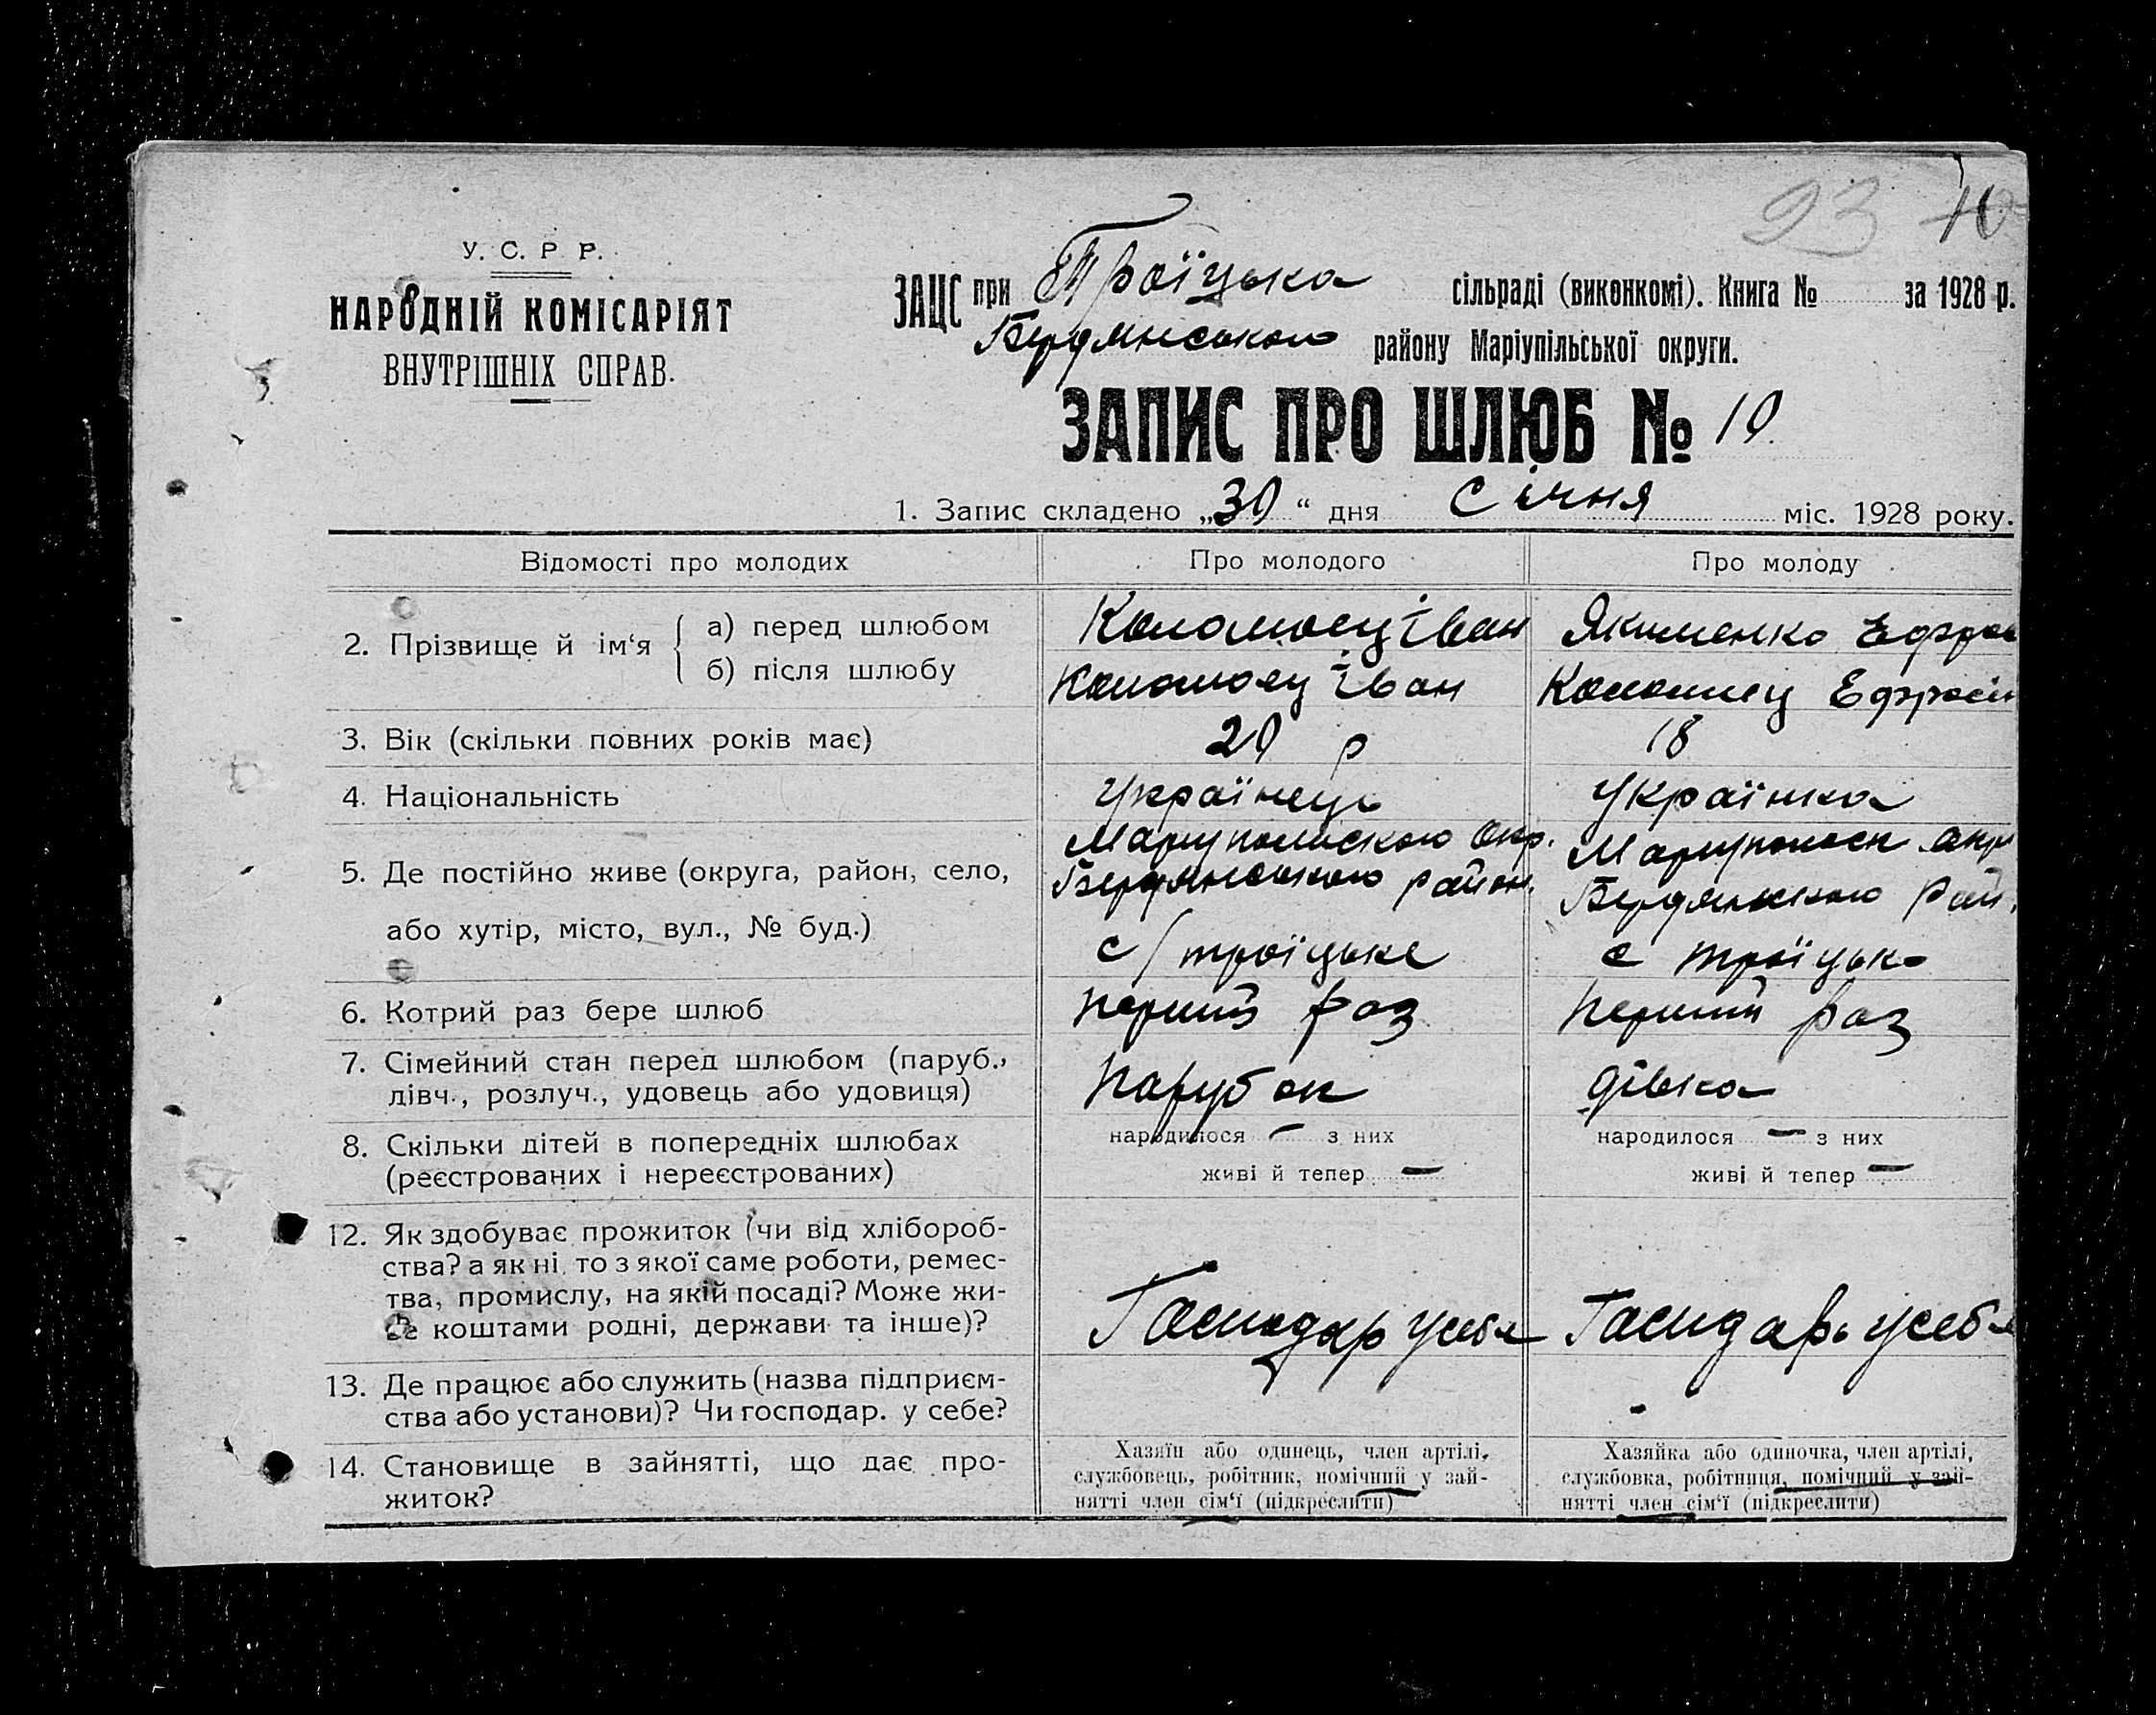 93 10
У. С. Р Р.
НАРОДНІЙ КОМІСАРІЯТ
ВНУТРІШНІХ СПРАВ.
ЗАЦС при Троїцька сільраді (виконкомі). Книга № за 1928 р.
Бердянського району Маріупільської округи.
ЗАПИС ПРО ШЛЮБ № 10
1. Запис складено „30“ дня Січня міс. 1928 року.
Відомості про молодих Про молодого Про молоду
2. Прізвище й ім‘я { а) перед шлюбом Коломоец Іван Якименко Ефрос
б) після шлюбу Коломоец Іван Коломиец Ефросін
3. Вік (скільки повних років має) 20 р 18
4. Національність Українець Українка
5. Де постійно живе (округа, район, село, Мариупольского Окр. Мариупольск окру
Бердянського район. Бердянського Рай.
або хутір, місто, вул., № буд.) с/троїцьке с троїцьк
6. Котрий раз бере шлюб перший раз перший раз
7. Сімейний стан перед шлюбом (паруб.,
дівч., розлуч., удовець або удовиця) парубок дівка
8. Скільки дітей в попередніх шлюбах народилося — з них народилося — з них
(реєстрованих і нереєстрованих) живі й тепер — живі й тепер —
12. Як здобуває прожиток (чи від хлібороб-
ства? а як ні то з якої саме роботи, ремес-
тва, промислу, на якій посаді? Може жи-
ве коштами родні, держави та інше)? Господар усебе Гасидарь усебе
13. Де працює або служить (назва підприєм-
ства або установи)? Чи господар. у себе?
14. Становище в зайнятті, що дає про-
житок?
Хазяїн або одинець, член артілі, службовець, робітник, помічний у зай-
нятті член сім‘ї (підкреслити)
Хазяйка або одиночка, член артілі,
службовка, робітниця, помічний у зай-
нятті член сім‘ї (підкреслити)